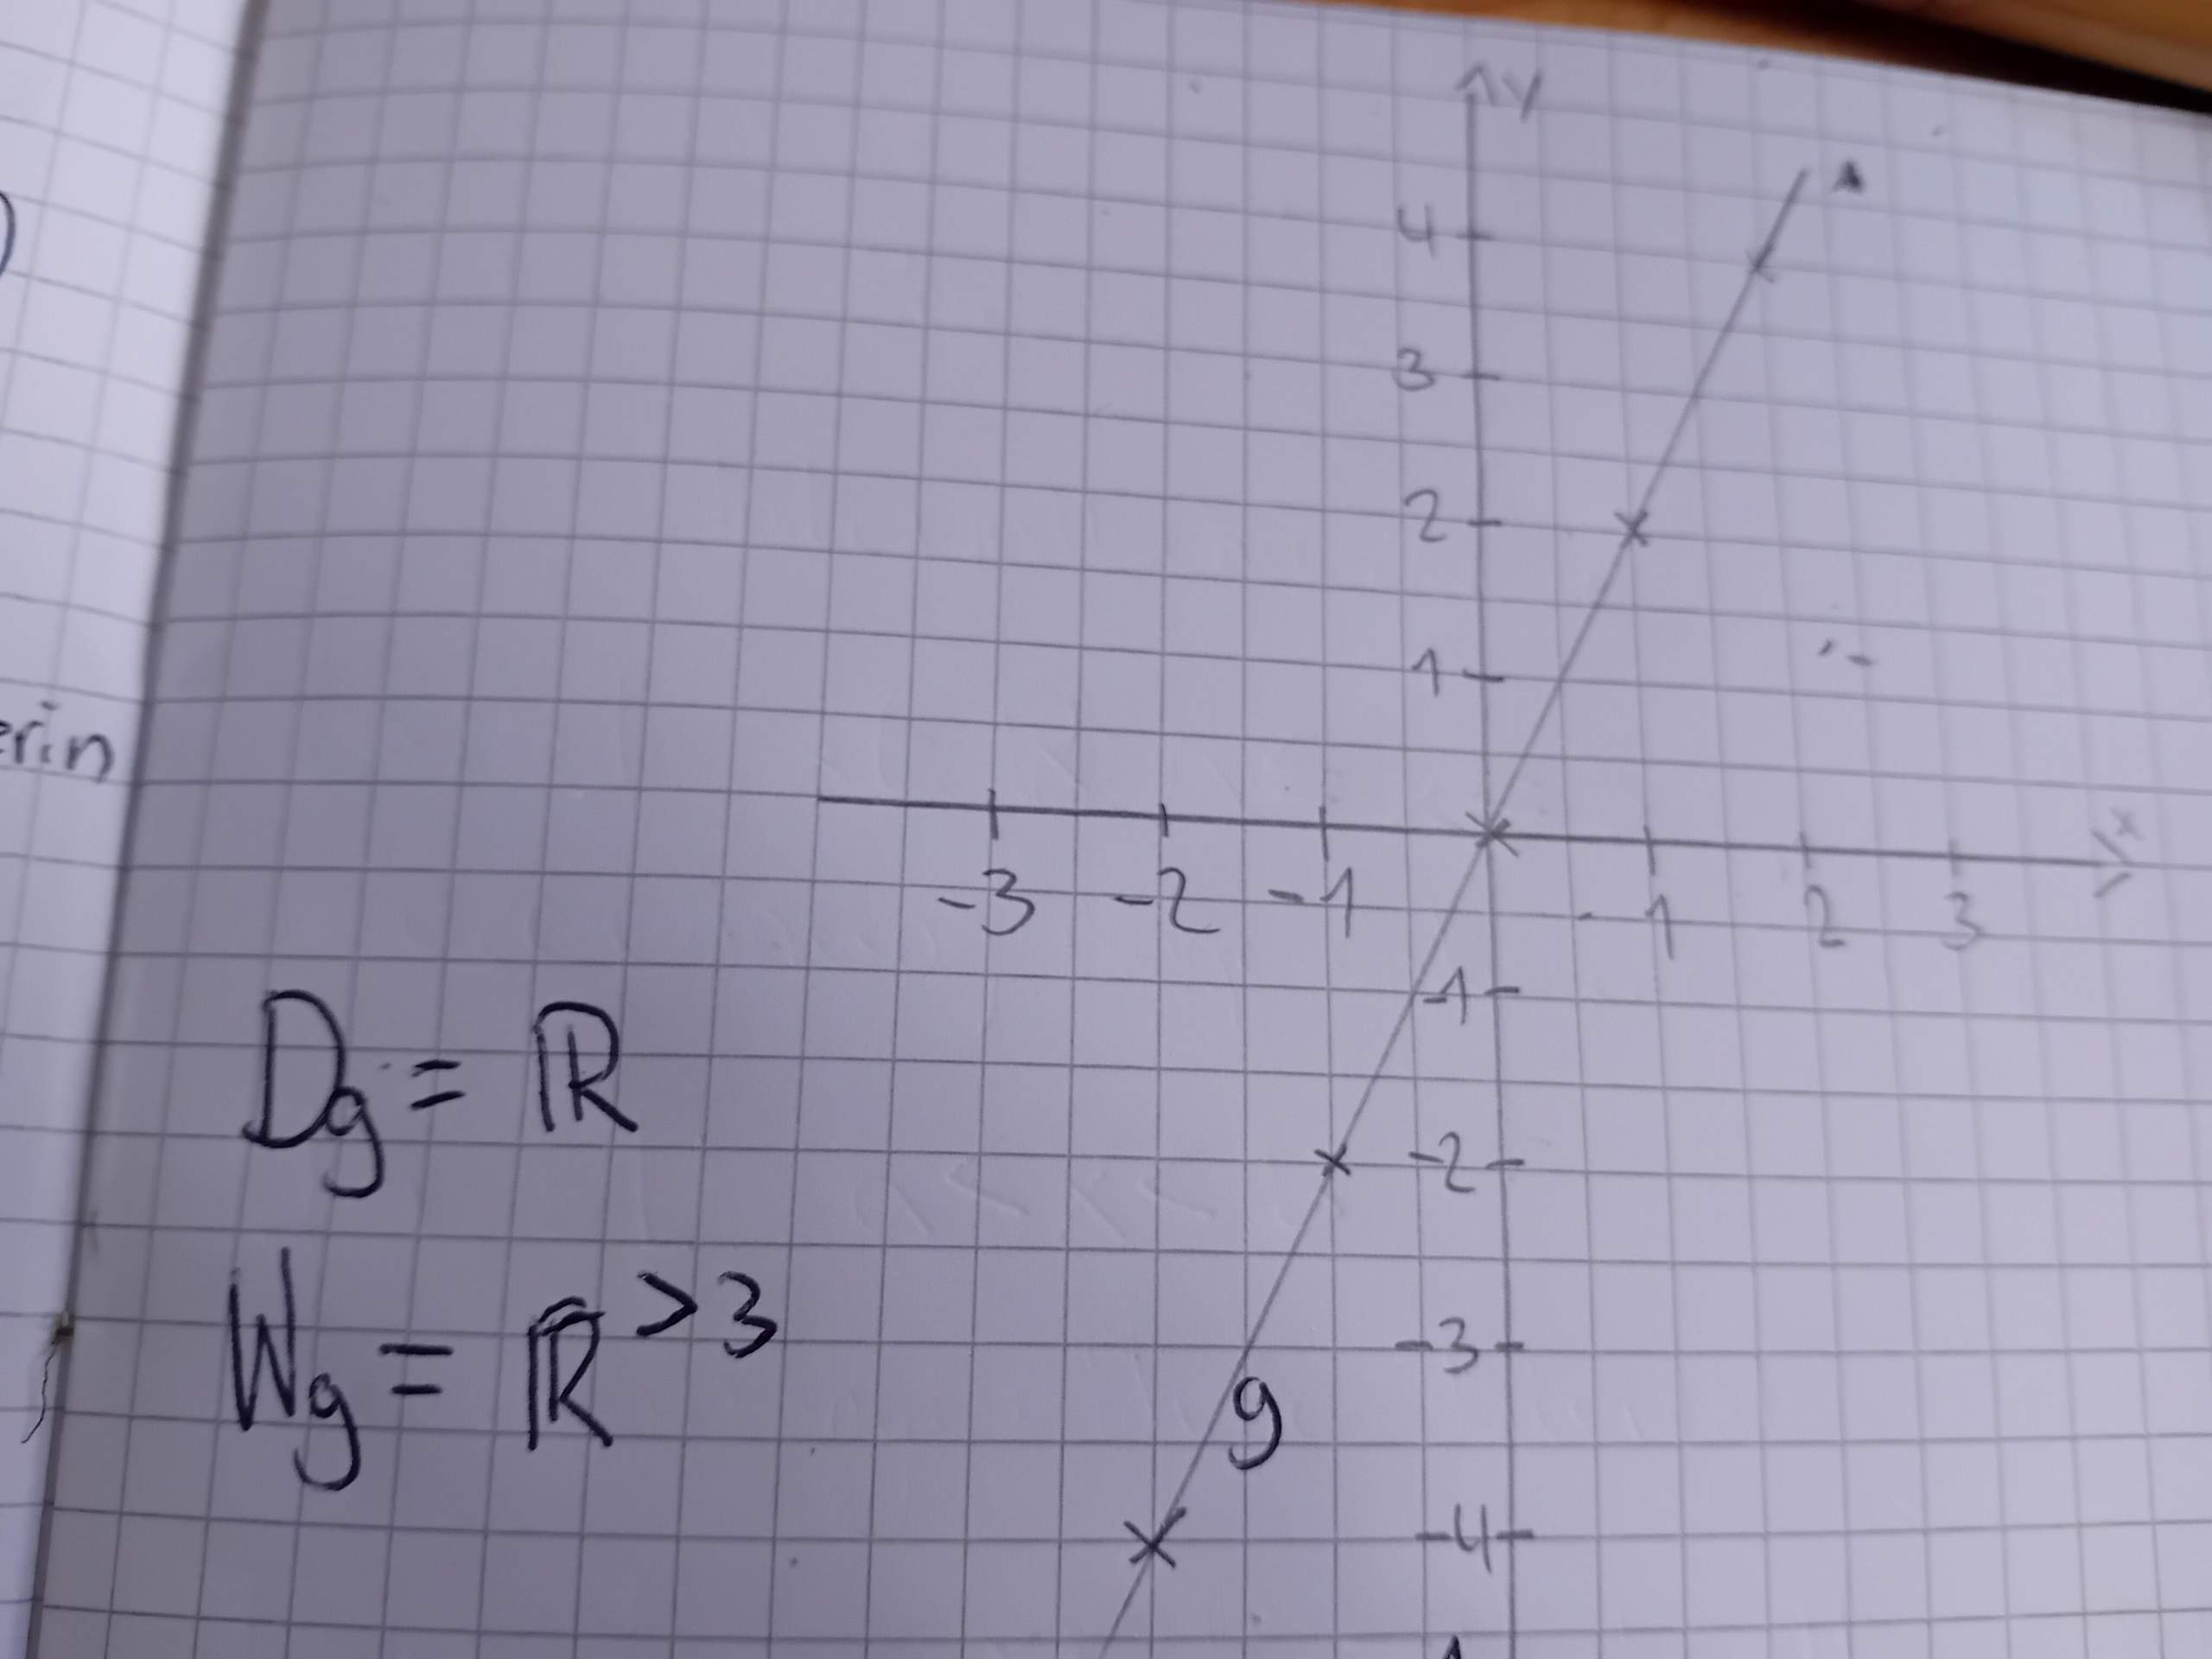 y
4
3
2
1
x
-3 -2 -1 1 2 3
erin
-1
Dg = ℝ
-2
Wg = ℝ >3
-3
g
-4